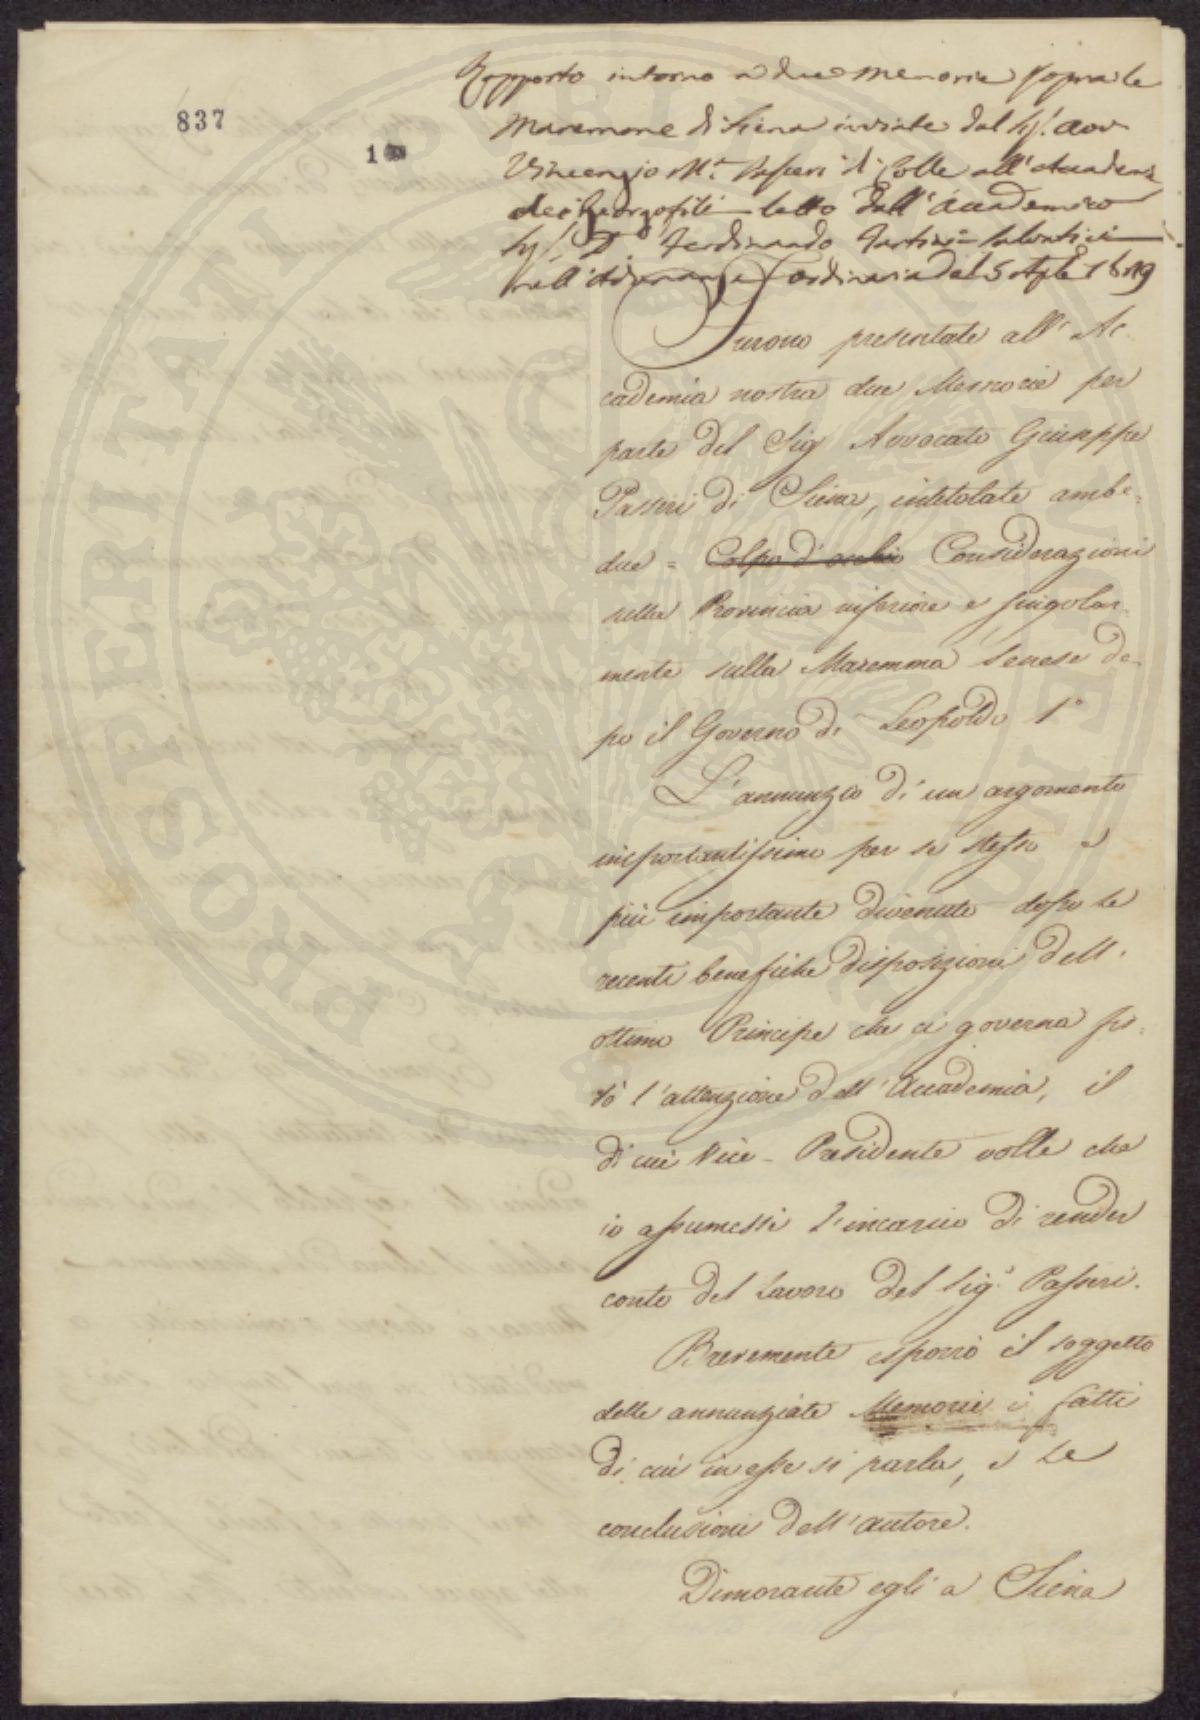 837
1
Rapporto intorno a due memorie sopra le
Maremme di Siena inviate dal Sig. Avv
Vincenzio M.a Passeri di Colle all'Accademia
dei Georgofili letto dall'Accademico
Sig. D. Ferdinando Tartini Salvatici
nell'Adunanza ordinaria del 5 1819
Furono presentate all'Ac-
cademia nostra due Memorie per
parte del Sig Avvocato Giuseppe
Passeri di Siena, intitolate ambe=
due = Colpo d'occhio Considerazioni
sulla Provincia inferiore e singolar-
mente sulla Maremma Senese do-
po il Governo di Leopoldo 1°
L'annunzio di un argomento
importantissimo per se stesso e
più importante divenuto dopo le
recenti benefiche disposizioni dell'
ottimo Principe che ci governa fis-
sò l'attenzione dell'Accademia, il
di cui Vice-Presidente volle che
io assumessi l'incarico di render
conto del lavoro del Sig.r Passeri.
Brevemente esporrò il soggetto
delle annunziate Memorie i fatti
di cui in esse si parla, e le
conclusioni dell'autore.
Dimorante egli a Siena
PROSPERITATI PUBLICAE AUGENDAE